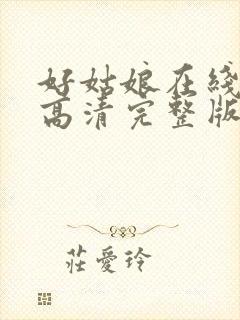 好姑娘在綫
高清完整版
莊愛玲